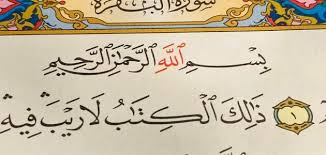 سُورَةُ الْبَقَرَةِ
بِسْمِ ٱللَّهِ ٱلرَّحْمَٰنِ ٱلرَّحِيمِ
١ ذَٰلِكَ ٱلْكِتَٰبُ لَا رَيْبَ فِيهِ